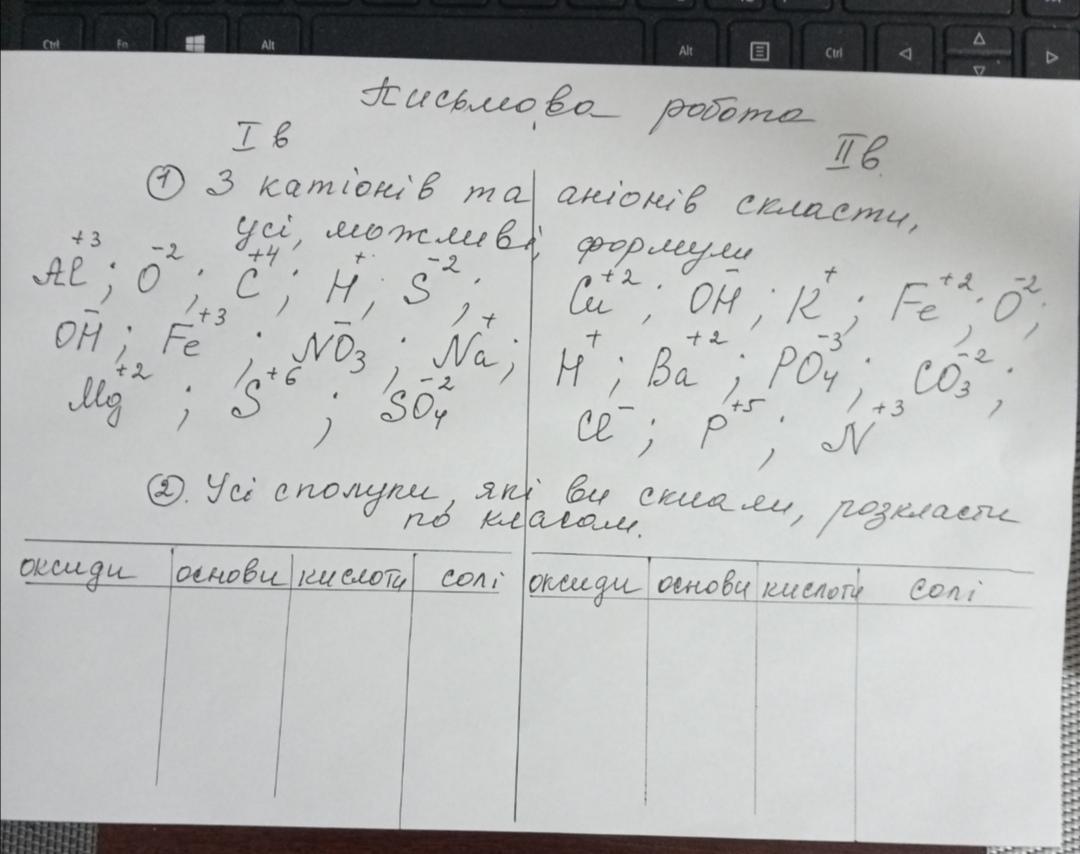 Ctrl Fn Alt Alt Ctrl
Письмова робота
I в
II в.
① З катіонів та аніонів скласти,
усі, можливі формули
Al⁺³; O⁻²; C⁺⁴; H⁺; S⁻²;
OH⁻; Fe⁺³; NO₃⁻; Na⁺;
Mg⁺²; S⁺⁶; SO₄⁻²
Cu⁺²; OH⁻; K⁺; Fe⁺²; O⁻²;
H⁺; Ba⁺²; PO₄⁻³; CO₃⁻²;
Cl⁻; P⁺⁵; N⁺³
②. Усі сполуки, які ви склали, розкласти
по класам.
оксиди основи кислоти солі оксиди основи кислоти солі